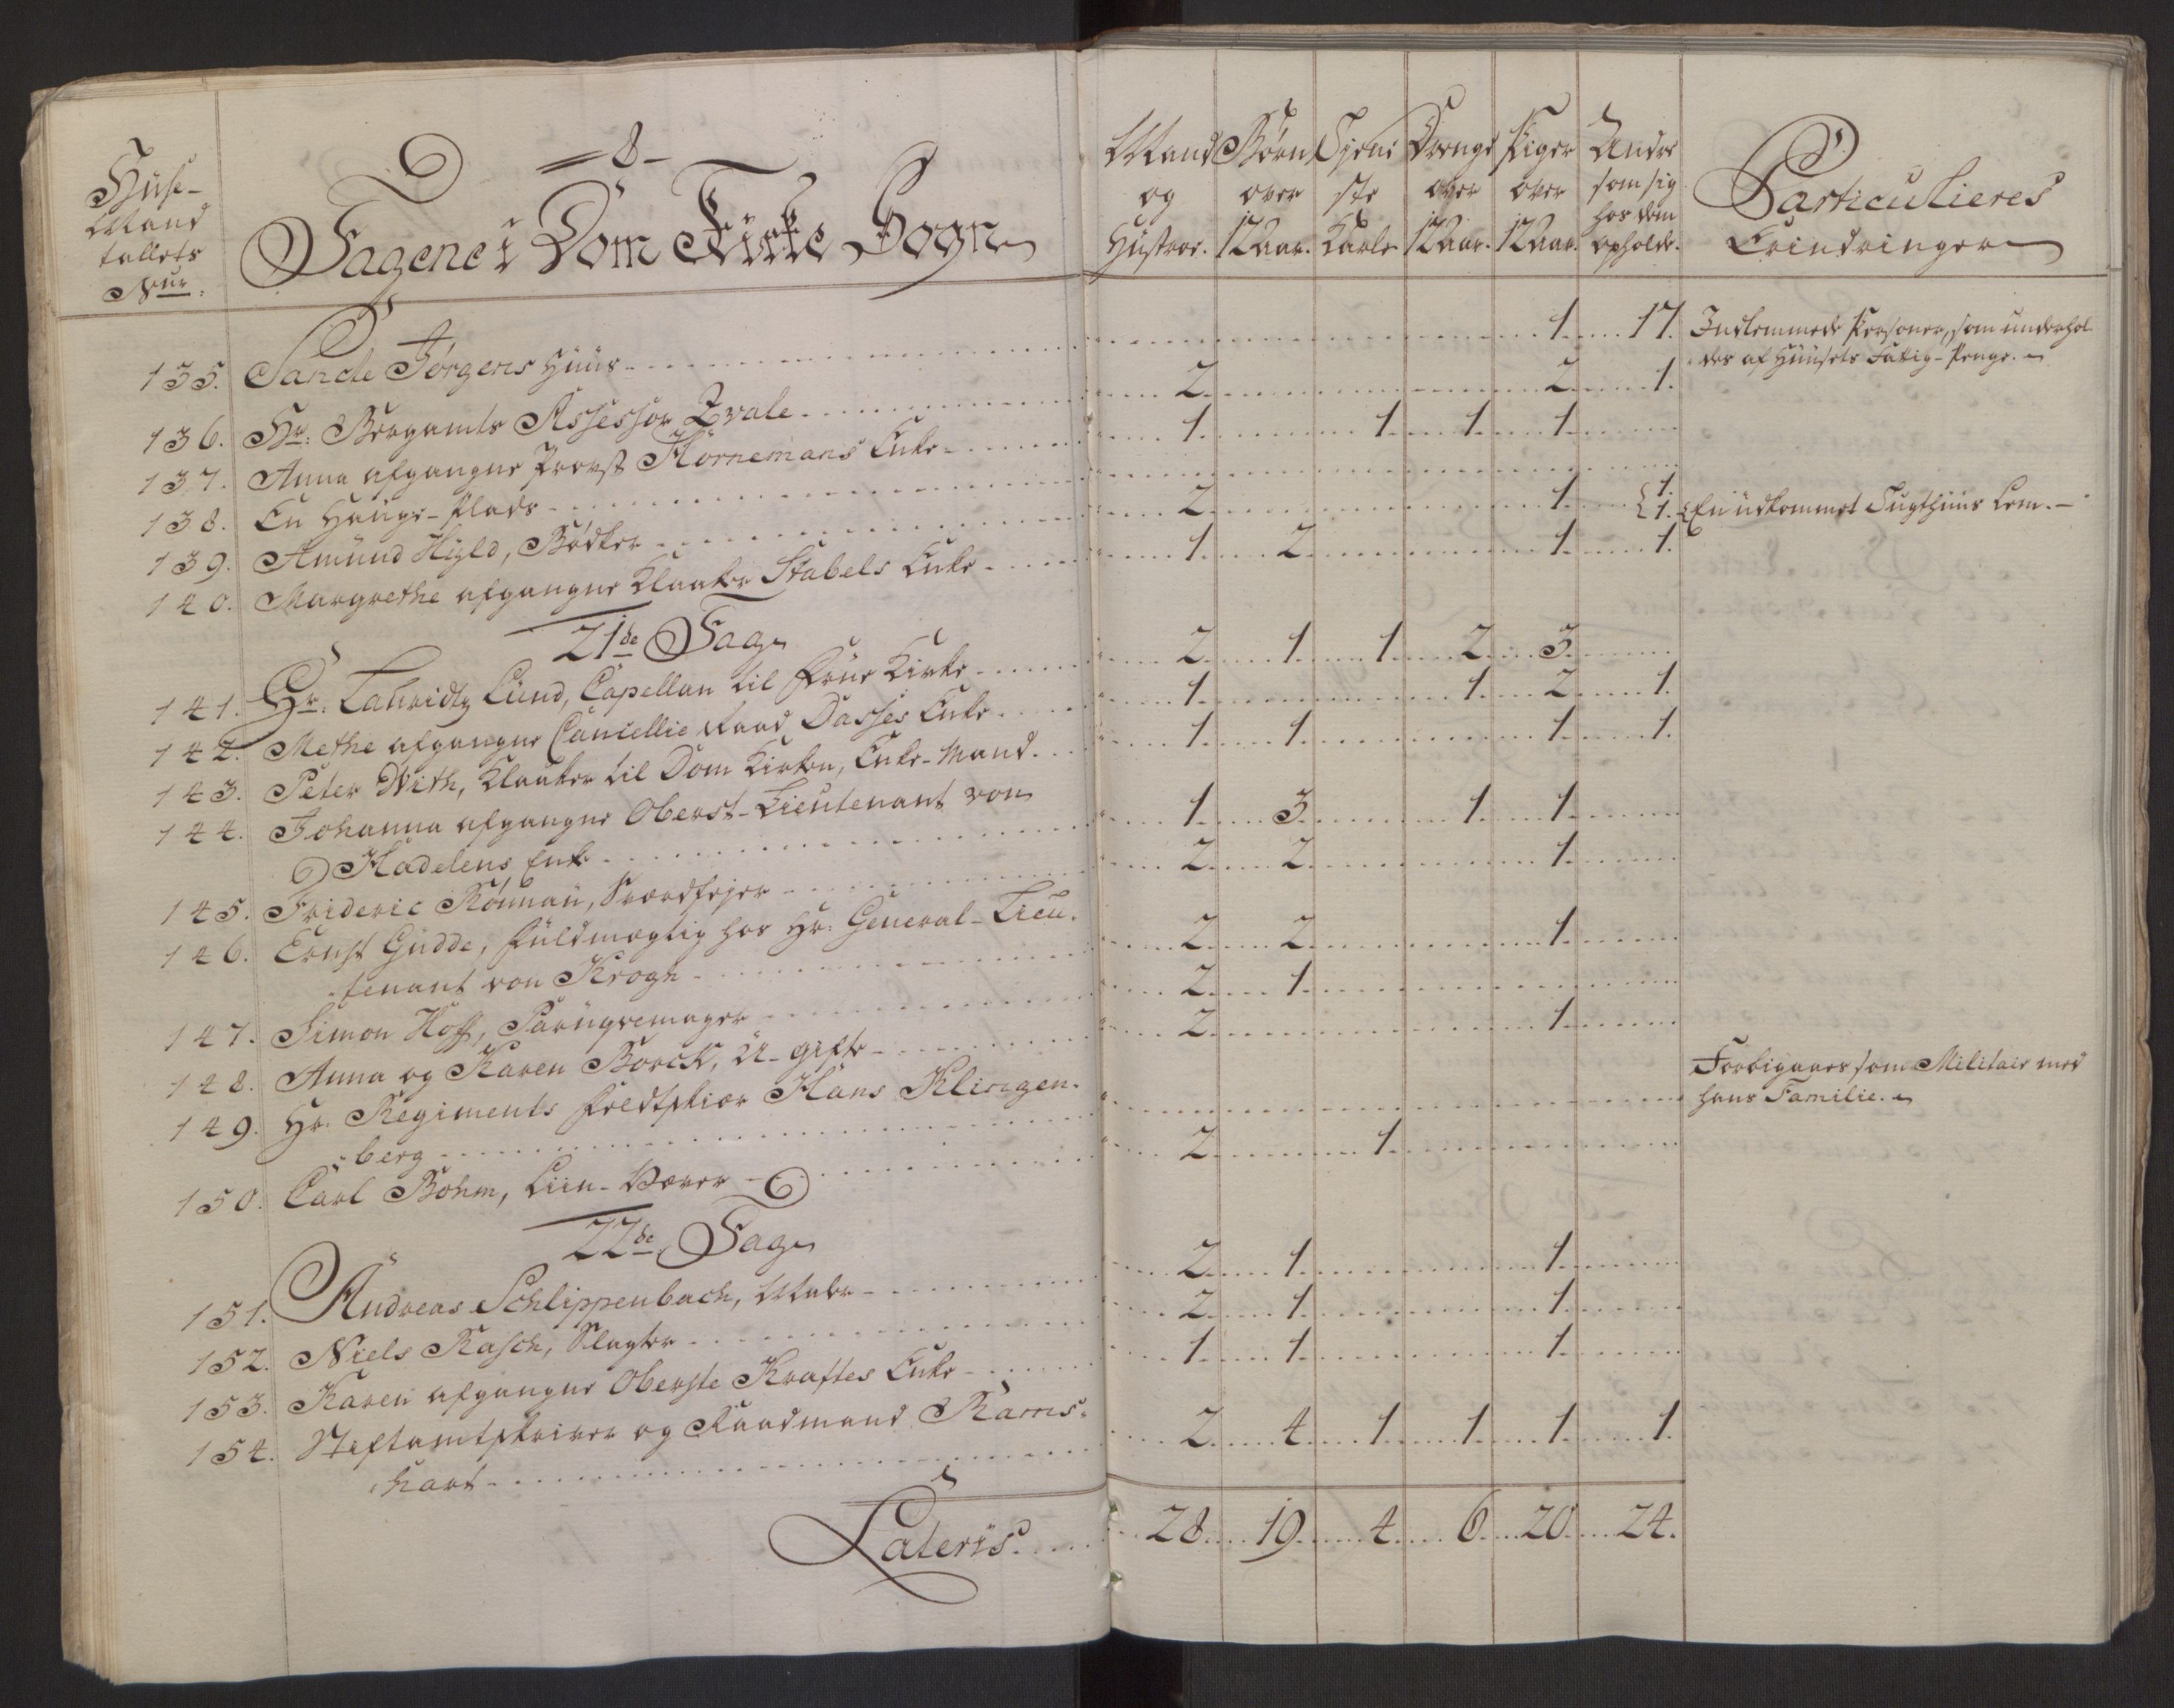 -8-
Huse-
Mand
tallets
Nur:
Tagene i Dom Kirke Sogn
Mand og Hustroe.
Børn over 12 Aar.
Tjeneste Karle
Drenge over 12 Aar.
Piger over 12 Aar.
Andre som sig hos dem opholde.
Particulieres Erindringer
135. Sancte Jørgens Huus 1. 17. Indlemmede Personer, som underhol-
des af Huusets Fattig-Penge.
136. Hr: Bergamts Assessor Zvale 2. 2. 1.
137. Anna afgangne Provst Hornemans Enke 1. 1. 1. 1.
138. En Hauge-Plads
139. Amund Hyld, Bødker 2. 1. 1. 1. En udkommet Tugthuus Lem.
140. Margrethe afgangne Klokker Stabels Enke 1. 2. 1. 1.
21de Tag
141. Hr: Lauridtz Lund, Capellan til Frue Kirke 2. 1. 1. 2. 3.
142. Methe afgangne Cancellie Raad Dasses Enke 1. 1. 2. 1.
143. Peter With, Klokker til Dom Kirken, Enke-Mand. 1. 1. 1. 1.
144. Johanna afgangne Oberst-Lieutenant von
Hadelens Enke 1. 3. 1. 1.
145. Frideric Rönnau, Sværdfejer 2. 2. 1.
146. Ernst Gudde, Fuldmægtig hos Hr: General-Lieu-
tenant von Krogh 2. 2. 1.
147. Simon Hoff, Paruqvemager 2. 1.
148. Anna og Karen Borck, U-gifte 2. 1.
149. Hr. Regiments Feldtskiær Hans Klingen-
berg Forbigaaes som Militair med
hans Familie.
150. Carl Bohm, Liin-Væver 2. 1.
22de Tag
151. Andreas Schlippenbach, Maler 2. 1. 1.
152. Niels Rasch, Slagter 2. 1. 1.
153. Karen afgangne Oberste Kraftes Enke 1. 1. 1.
154. Stiftamtskriver og Raadmand Rams-
hart 2. 4. 1. 1. 1. 1.
Lateris. 28. 19. 4. 6. 20. 24.